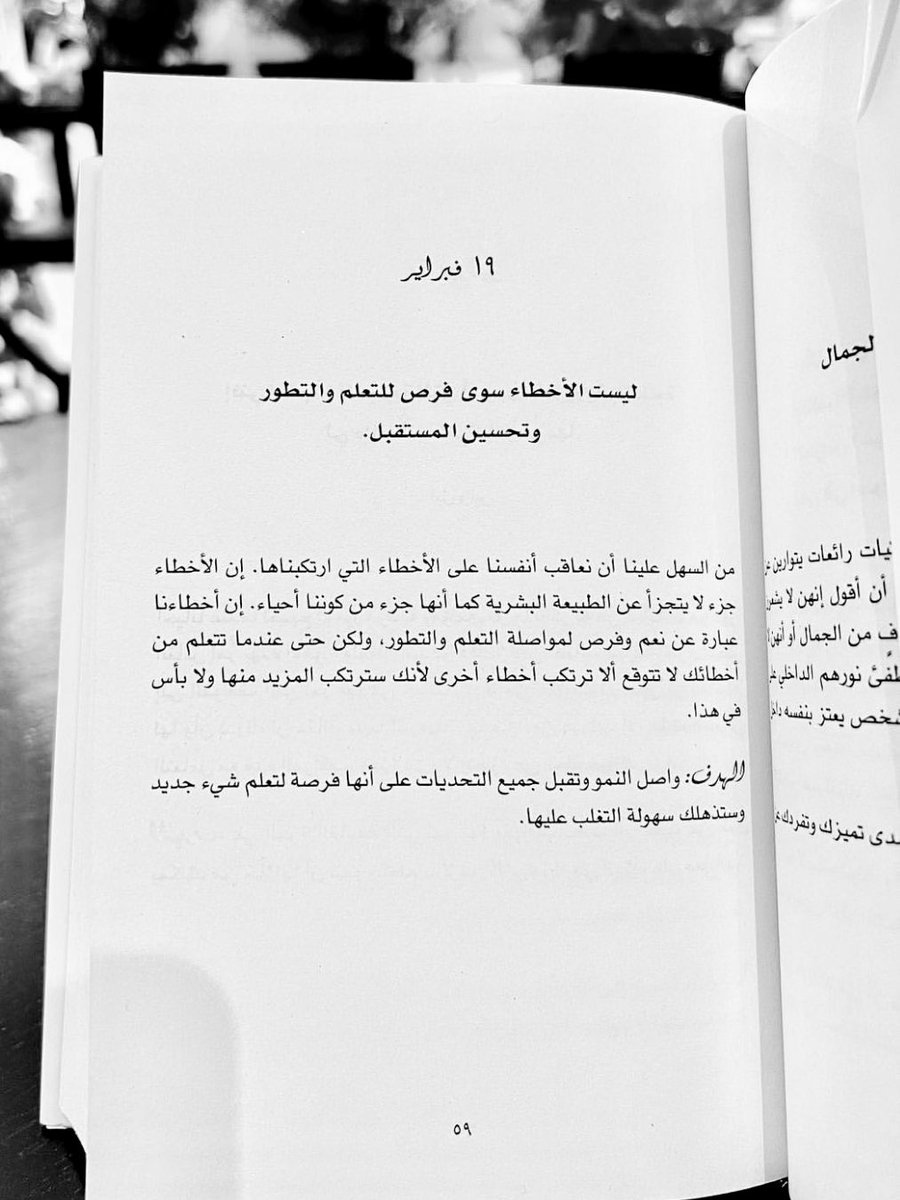 ١٩ فبراير
ليست الأخطاء سوى فرص للتعلم والتطور
وتحسين المستقبل.
من السهل علينا أن نعاقب أنفسنا على الأخطاء التي ارتكبناها. إن الأخطاء
جزء لا يتجزأ عن الطبيعة البشرية كما أنها جزء من كوننا أحياء. إن أخطاءنا
عبارة عن نعم وفرص لمواصلة التعلم والتطور، ولكن حتى عندما تتعلم من
أخطائك لا تتوقع ألا ترتكب أخطاء أخرى لأنك سترتكب المزيد منها ولا بأس
في هذا.
الهدف: واصل النمو وتقبل جميع التحديات على أنها فرصة لتعلم شيء جديد
وستذهلك سهولة التغلب عليها.
٥٩
لجمال
رائعات يتوارين
أن أقول إنهن لا
من الجمال أو أنهن
نورهم الداخلي
يعتز بنفسه
تميزك وتفردك